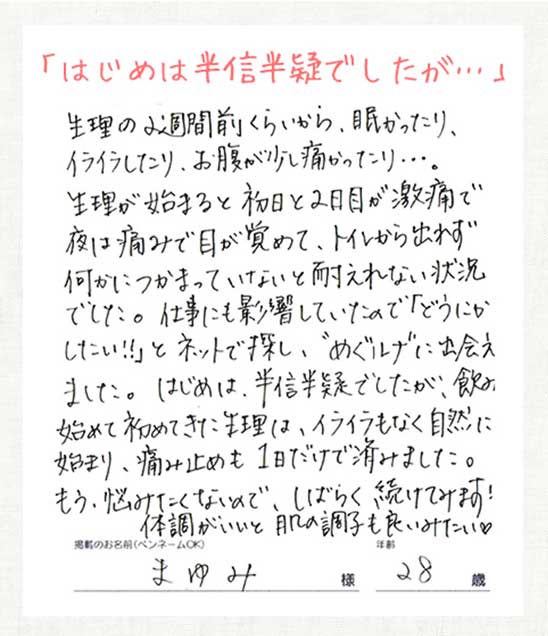 「はじめは半信半疑でしたが…」
生理の2週間前くらいから、眠かったり、
イライラしたり、お腹が少し痛かったり…。
生理が始まると初日と2日目が激痛で
夜は痛みで目が覚めて、トイレから出れず
何かにつかまっていないと耐えれない状況
でした。仕事にも影響していたので「どうにか
したい!!」とネットで探し、"めぐルナ"に出会え
ました。はじめは、半信半疑でしたが、飲み
始めて初めてきた生理は、イライラもなく自然に
始まり、痛み止めも1日だけで済みました。
もう、悩みたくないので、しばらく続けてみます!
体調がいいと肌の調子も良いみたい♡
掲載のお名前(ペンネームOK) 年齢
まゆみ 様 28 歳